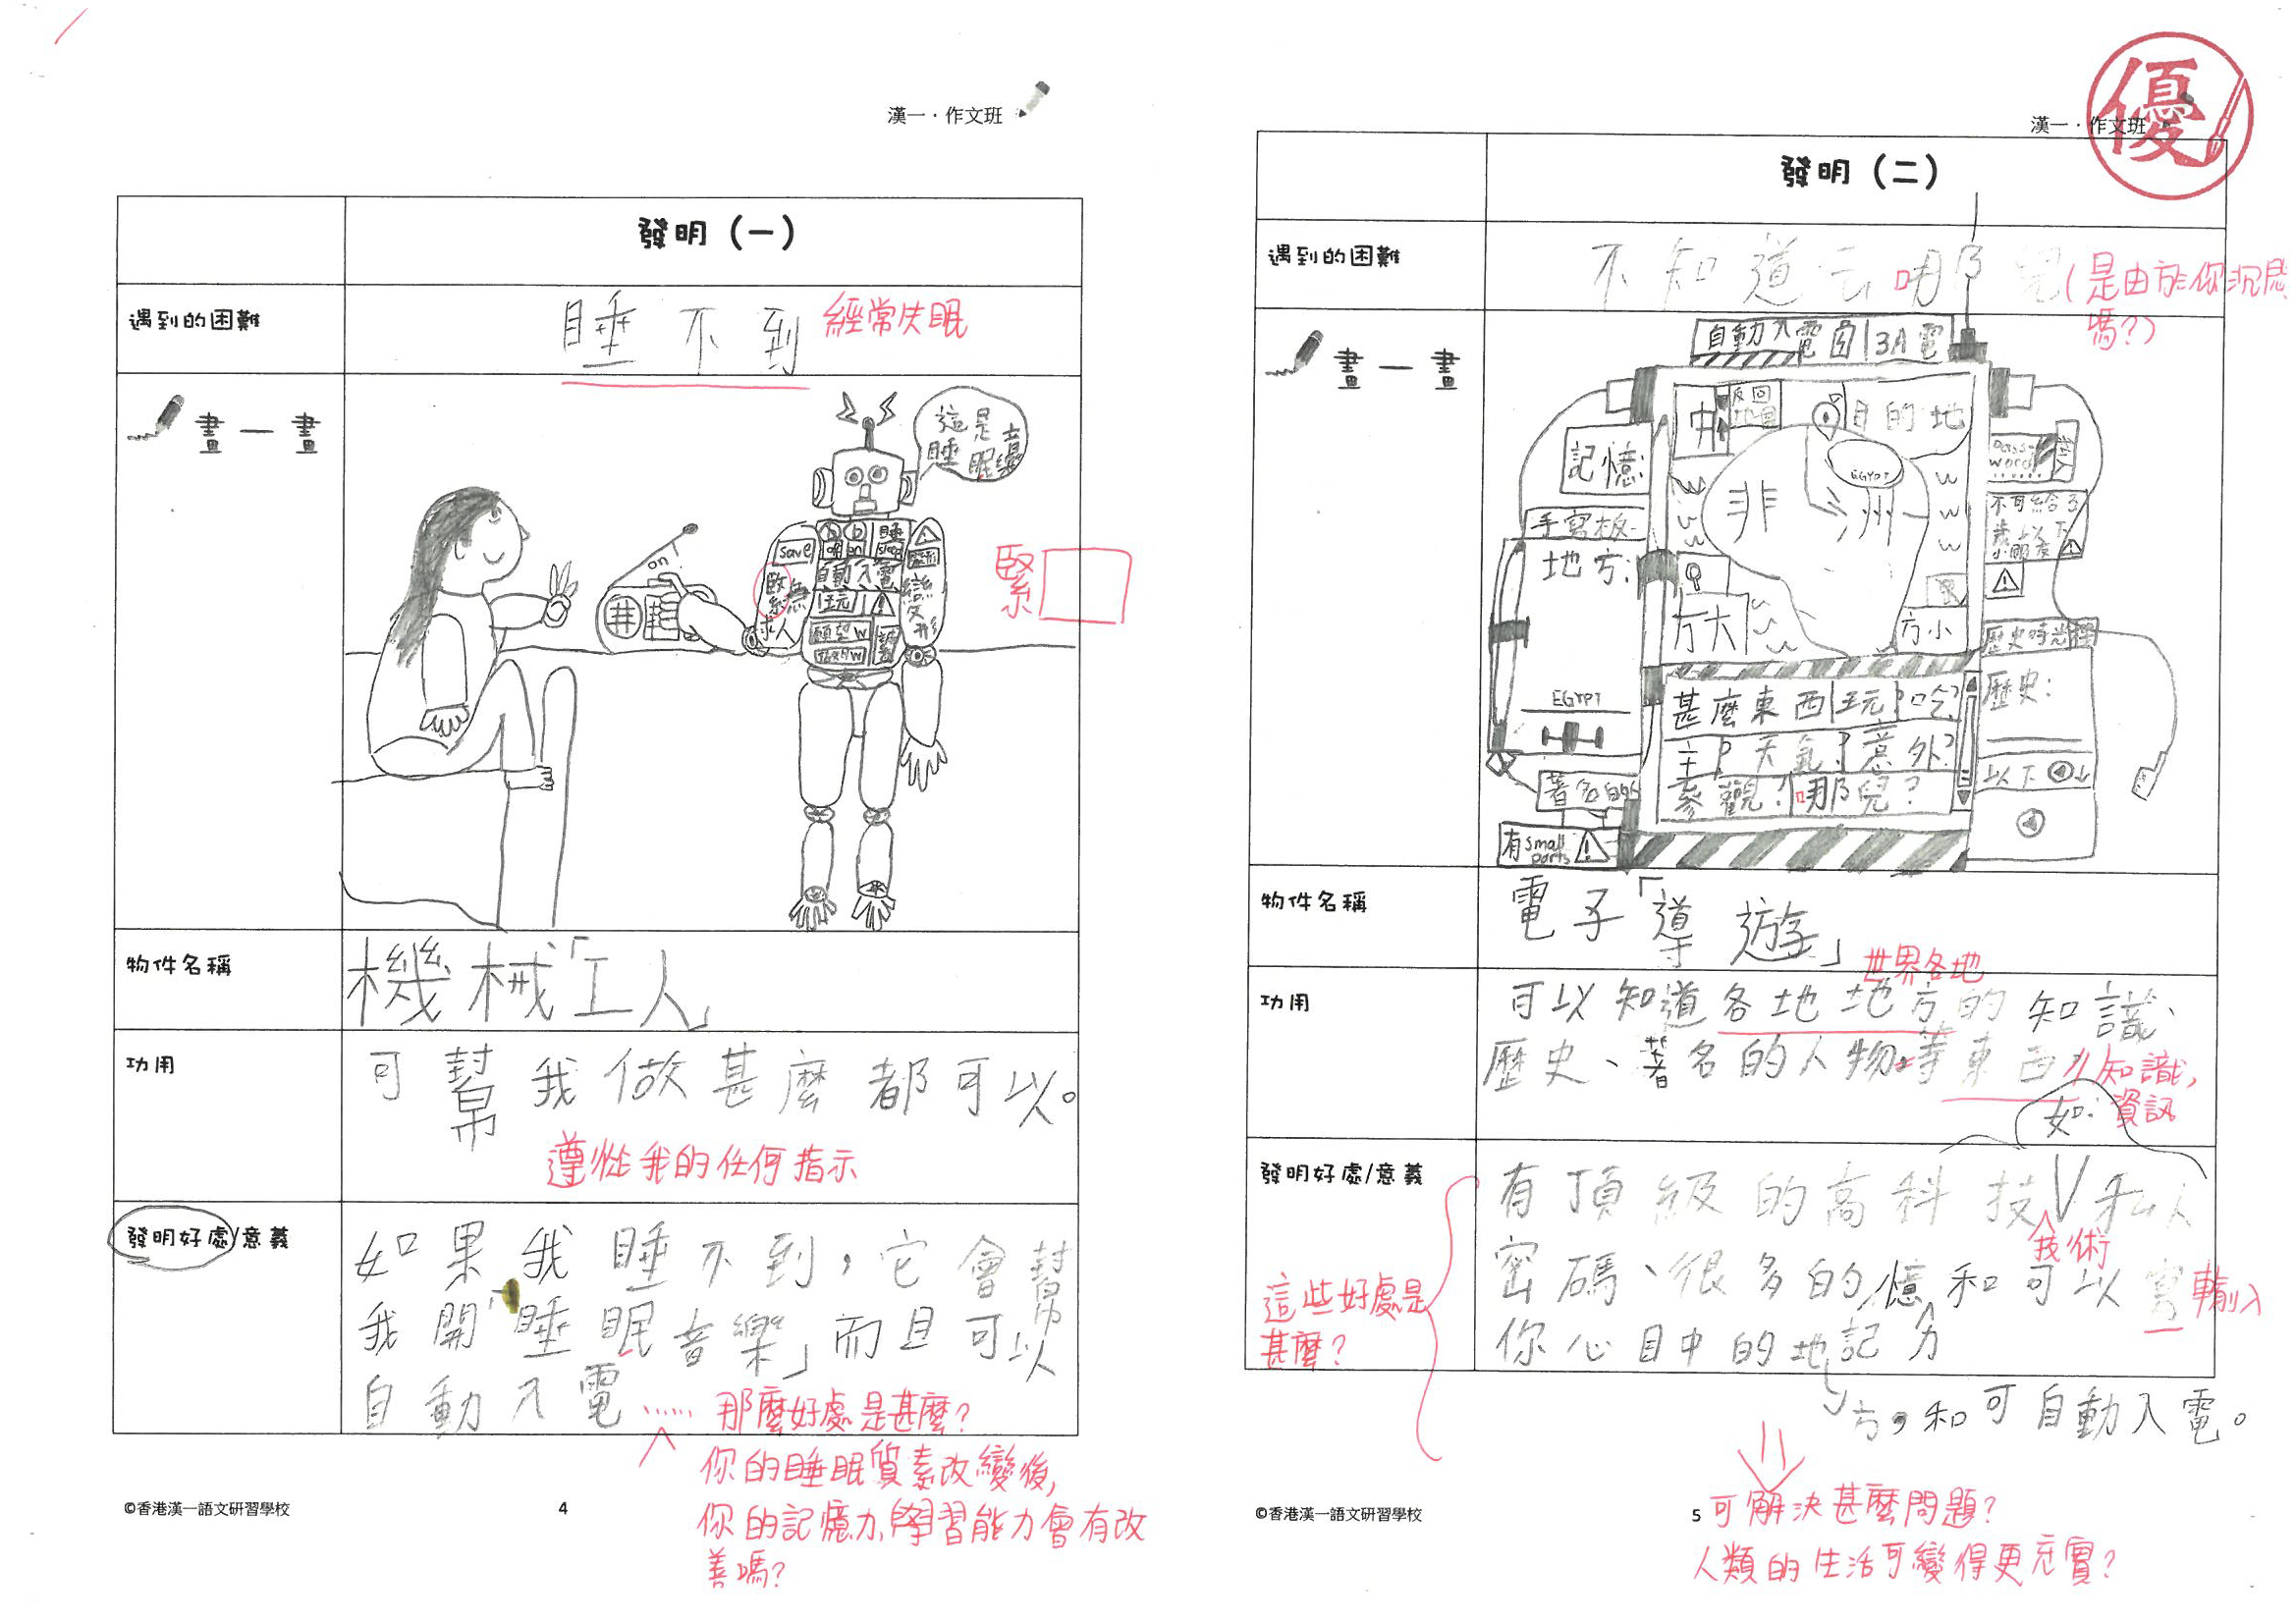 漢一．作文班
發明（一）
遇到的困難
睡不到
經常失眠
畫一畫
這是
睡眠
save
off on
睡
sleep
on
緊急
求人
自動入電
玩
願望w
變形
緊
物件名稱
機械「工人」
功用
可幫我做甚麼都可以。
遵從我的任何指示
發明好處/意義
如果我睡不到，它會幫
我開「睡眠音樂」而且可以
自動入電
……那麼好處是甚麼？
你的睡眠質素改變後，
你的記憶力、學習能力會有改
善嗎？
©香港漢一語文研習學校
4
優
漢一．作文班
發明（二）
遇到的困難
不知道去哪兒
（是由於你沉悶
嗎？）
畫一畫
自動入電 3A電
返回
地圖
目的地
記憶
手寫板
地方：
EGYPT
非洲
EGYPT
方大
方小
password
不可給3
歲以下
小朋友
歷史時光
歷史：
以下
甚麼東西 玩？ 吃？
主？ 天氣？ 意外？
參觀？ 哪兒？
著名的
有small parts
物件名稱
電子「導遊」
功用
世界各地
可以知道各地地方的知識、
歷史、著名的人物等東西
知識，
資訊
發明好處/意義
如：
有頂級的高科技 私人
技術
密碼、很多的憶和可以寫
輸入
你心目中的地記力
方，和可自動入電。
這些好處是
甚麼？
可解決甚麼問題？
人類的生活可變得更充實？
©香港漢一語文研習學校
5